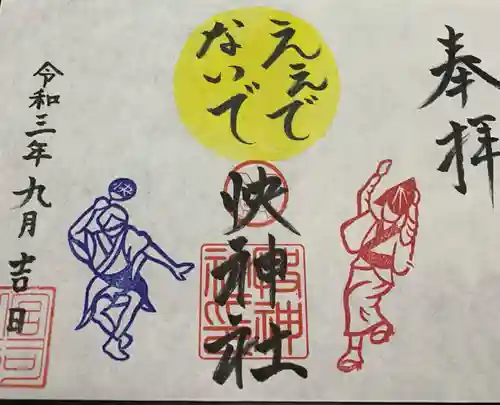 奉拝
ええで
ないで
快神社
令和三年九月吉日
快